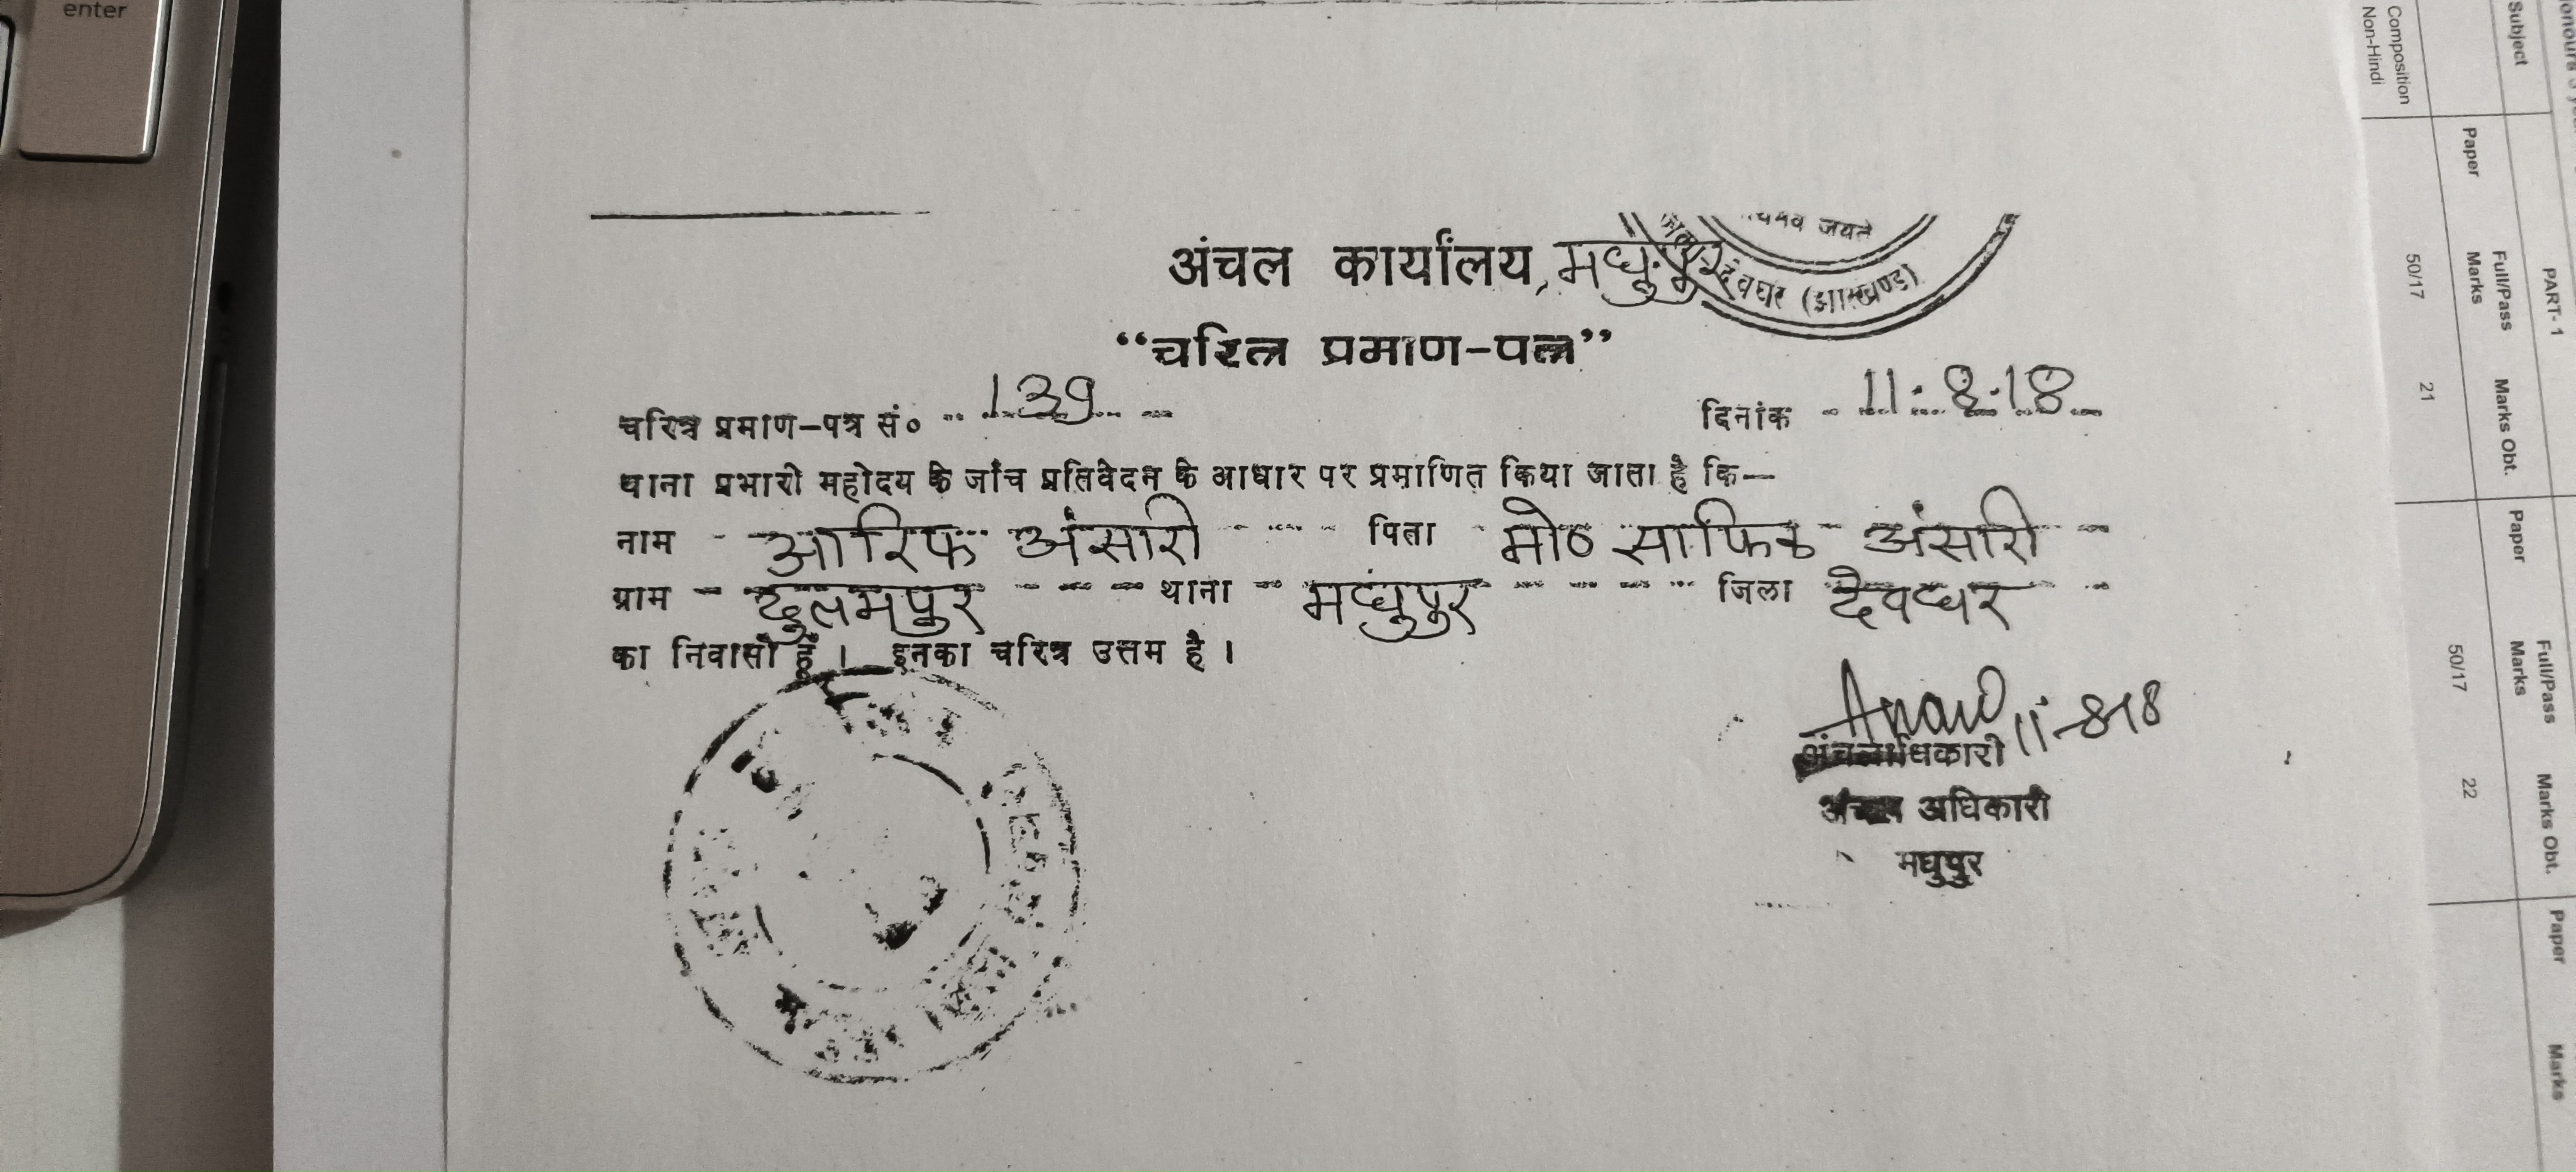 enter
अंचल कार्यालय, मधुपुर
यमेव जयते
देवघर (झारखण्ड)
“चरित्र प्रमाण-पत्र”
चरित्र प्रमाण-पत्र सं० 139 दिनांक 11.8.18
थाना प्रभारी महोदय के जाँच प्रतिवेदन के आधार पर प्रमाणित किया जाता है कि—
नाम आरिफ अंसारी पिता मो० साफिक अंसारी
ग्राम दुलमपुर थाना मधुपुर जिला देवघर
का निवासी हैं । इनका चरित्र उत्तम है ।
11-8-18
अंचलाधिकारी
अंचल अधिकारी
मधुपुर
PART- 1
Subject Paper Full/Pass Marks Marks Obt. Paper Full/Pass Marks Marks Obt. Paper Marks
Composition Non-Hindi 50/17 21 50/17 22